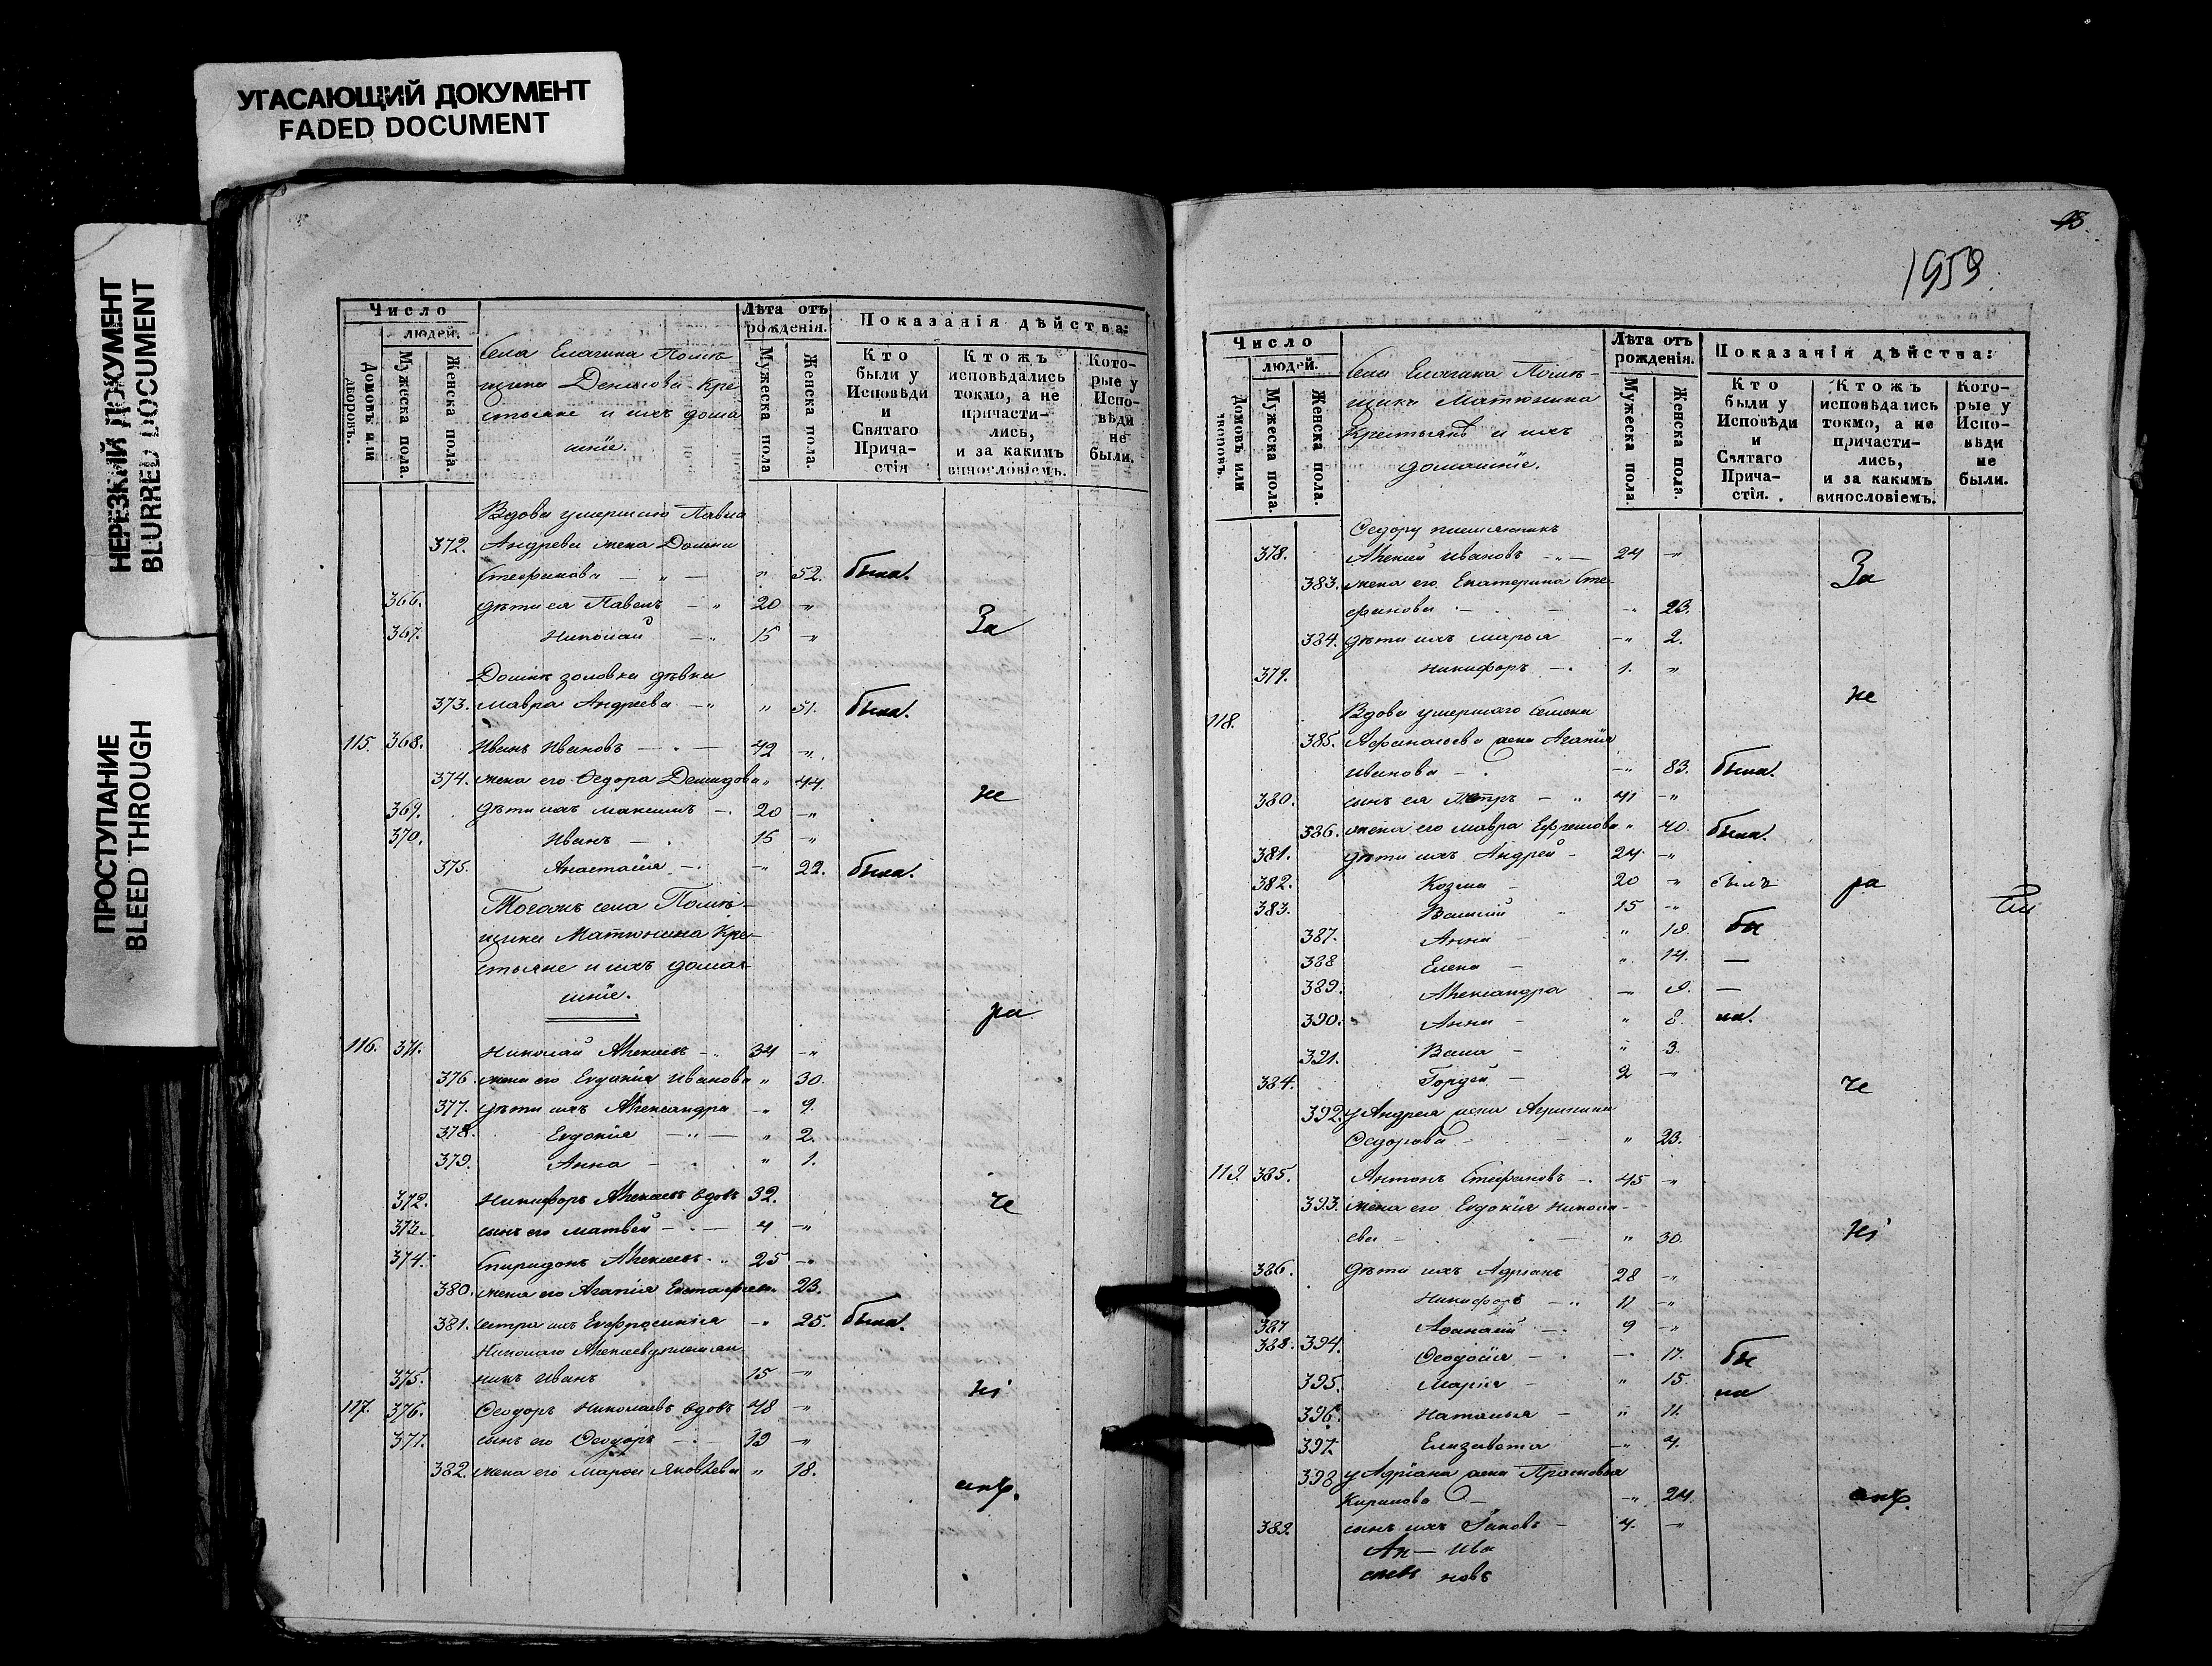 УГАСАЮЩИЙ ДОКУМЕНТ
FADED DOCUMENT
НЕРЕЗКИЙ ДОКУМЕНТ
BLURRED DOCUMENT
ПРОСТУПАНИЕ
BLEED THROUGH
Число
людей.
Домовъ или дворовъ.
Мужеска пола.
Женска пола.
Села Елагина Помѣ
щика Денисова Кре
стьяне и ихъ дома
шніе.
Лѣта отъ рожденія.
Мужеска пола
Женска пола.
Показанія дѣйства:
Кто были у Исповѣди и Святаго Причастія
Ктожъ исповѣдались токмо, а не причасти-лись, и за какимъ винословіемъ.
Кото-рые у Испо-вѣди не были.
Вдова умершаго Павла
372. Андреева жена Домна
Стефанова — „ — „ 52. была.
366. дѣти ея Павелъ — „ 20 — „
367. Николай — „ 15 — „ За
Домнѣ золовка дѣвка
373. Мавра Андреева — „ „ 51. была.
115. 368. Иванъ Ивановъ — . — 49 — „
374. жена его Ѳедора Демидова „ 44.
не
369. дѣти ихъ Максимъ — . 20 — „
370. Иванъ — . 15 — „
375. Анастасія — . — „ 22. была.
Тогожъ села Помѣ-
щика Матюнина Кре-
стьяне и ихъ дома-
шніе.
ра
116. 371. Николай Алексѣевъ — „ 34 — „
376. жена его Евдокія Иванова „ 30.
377. дѣти ихъ Александра — „ 9.
378. Евдокія — „ — „ 2.
379. Анна — . „ 1.
372. Никифоръ Алексѣевъ вдовъ 32. че
373. сынъ его Матвей — . — 4 — „
374. Спиридонъ Алексѣевъ . „ 25 — „
380. жена его Агапія 23.
381. сестра ихъ Евфросинія — „ 25. была.
Николаю Алексѣеву племян
375. никъ Иванъ 15 — „
ні
117. 376. Ѳеодоръ Николаевъ вдовъ 48 — „
377. сынъ его Ѳеодоръ — . — 19 — „
382. жена его Марья Яковлева „ 18.
емъ.
93
1959.
Число
людей.
Домовъ или дворовъ.
Мужеска пола.
Женска пола.
Села Елагина Помѣ-
щика Матюнина
Крестьянѣ и ихъ
домашніе.
Лѣта отъ рожденія.
Мужеска пола.
Женска пола.
Показанія дѣйства:
Кто были у Исповѣди и Святаго Прича-стія.
Ктожъ исповѣдались токмо, а не причасти-лись, и за какимъ винословіемъ.
Кото-рые у Испо-вѣди не были.
Ѳедору племянникъ
378. Алексѣй Ивановъ — „ — 24 — „
383. жена его Екатерина Сте- За
фанова — . — — „ 23.
384. дѣти ихъ Марья — „ 2.
379. Никифоръ — . 1. „
не
118. Вдова умершаго Семена
385. Афанасьева жена Агапія
Иванова — . — „ 83. была.
380. сынъ ея Петръ — „ 41 — „
386. жена его Мавра Ефремова „ 40. была.
381. дѣти ихъ Андрей — 24. — „
382. Козма — 20 „ былъ ра
383. Василій „ 15 — „
387. Анна — „ 19. бы
388 Елена — „ 14. —
389. Александра — „ 9. —
390. Анна — „ 8. ла.
391. Васса — „ 3.
384. Гордей — 2 — „ че
392. у Андрея жена Агрипина
Ѳедорова — „ 23.
119. 385. Антонъ Стефановъ — . 45 — „
393. жена его Евдокія Никола-
ева — . — „ 30. ні
386. дѣти ихъ Адріанъ 28 — „
Никифоръ — „ 11 — „
387 Аѳанасій — . 9 — „
388. 394. Ѳеодосія — . — . 17. бы
395. Марія — „ 15. ла
396. Наталья — „ 11.
397. Елизавета — „ 4.
398 у Адріана жена Прасковья
Кирилова — — „ 24. емъ.
389. сынъ ихъ Іаковъ — 4. — „